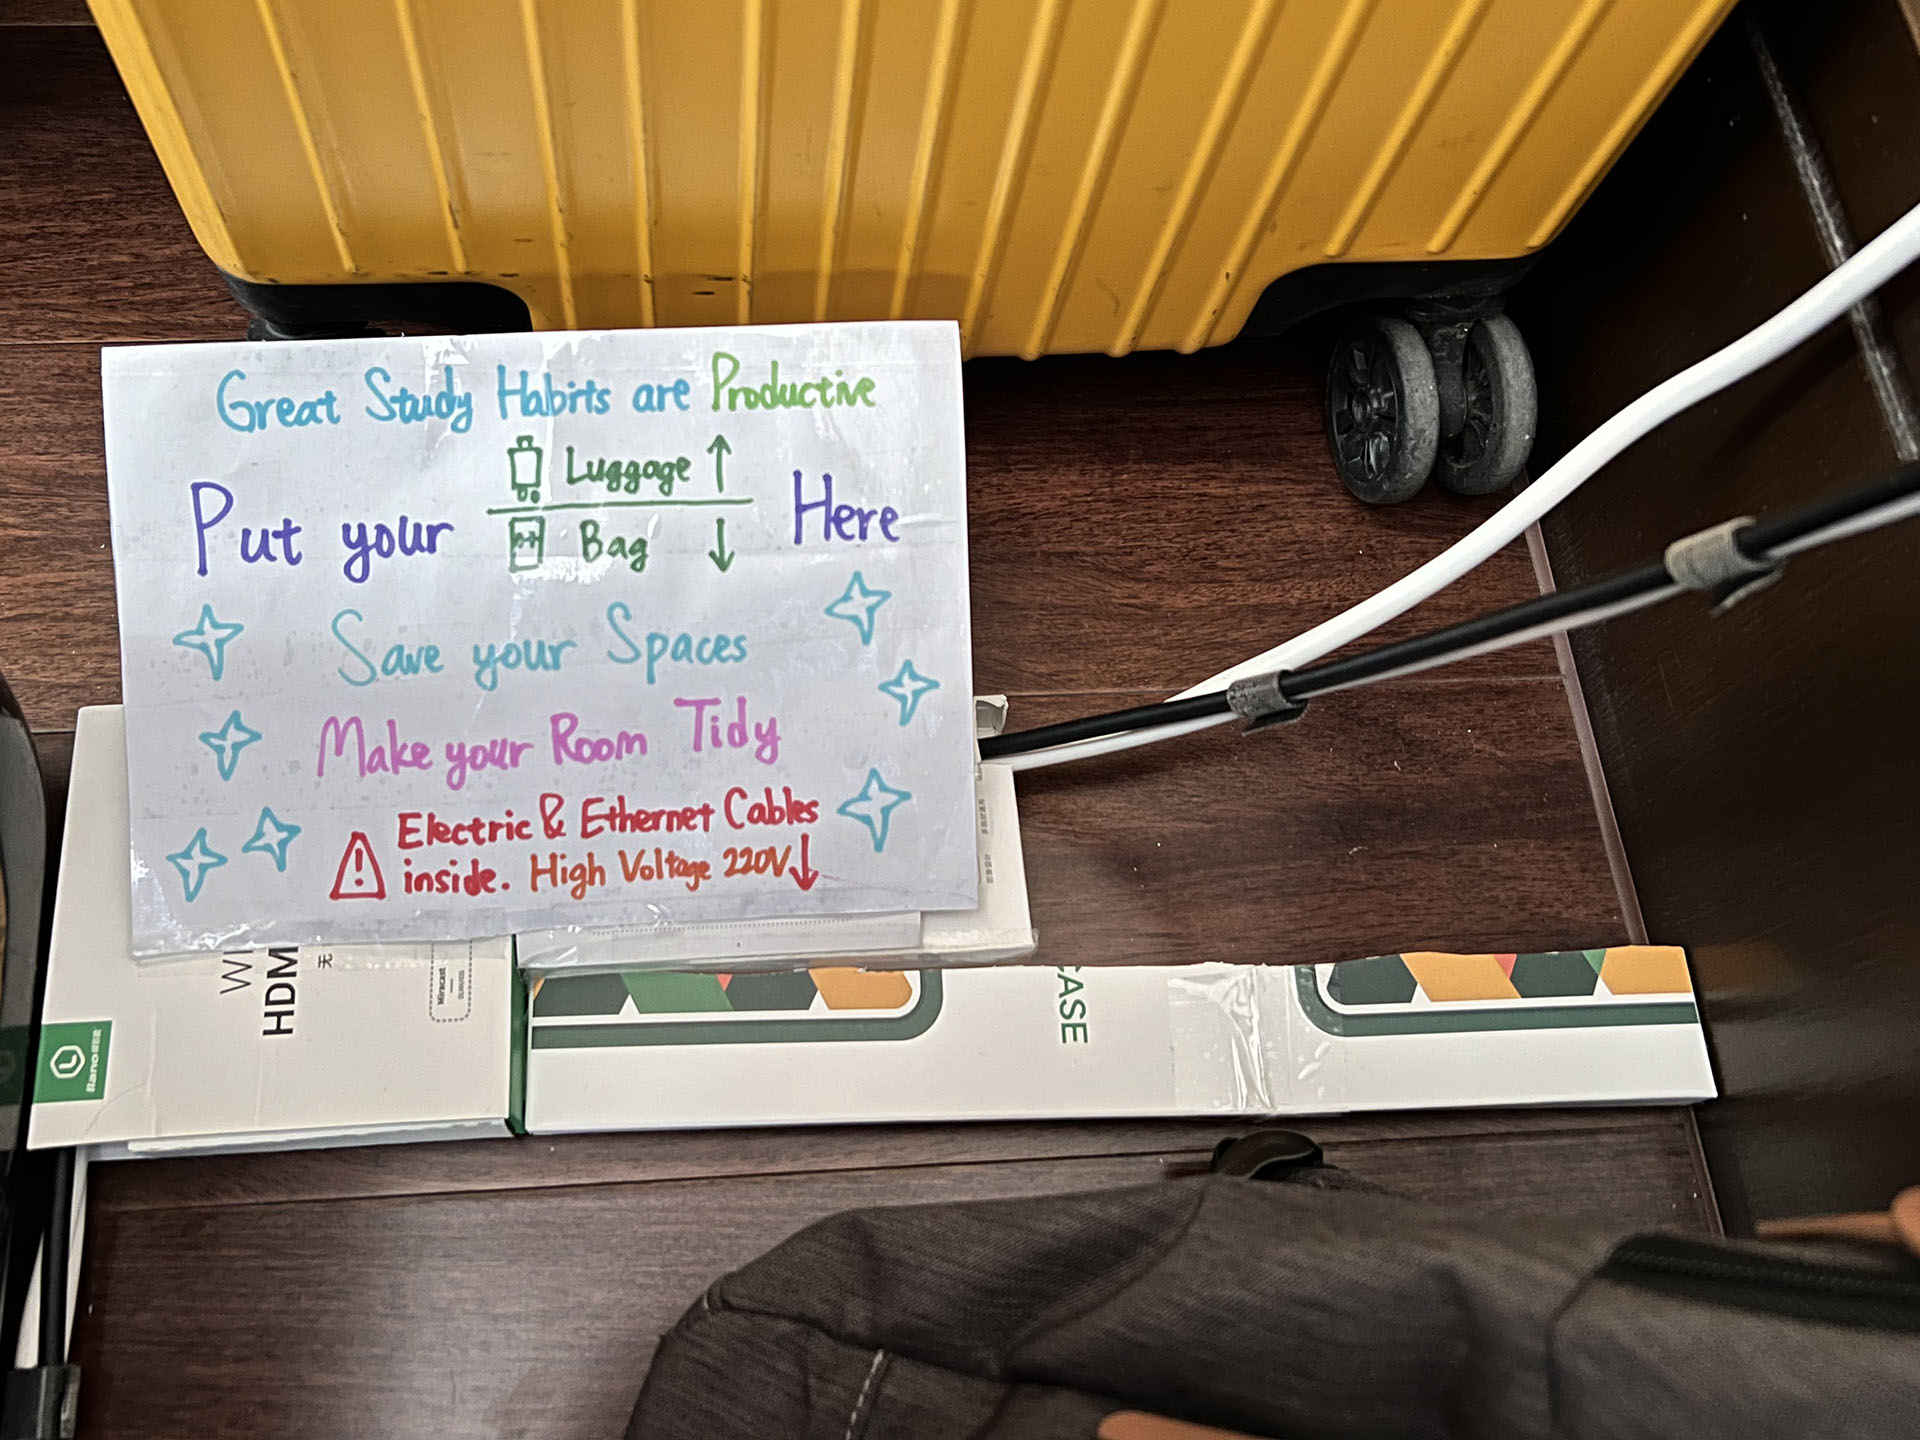 Great Study Habits are Productive
Luggage ↑
Put your Here
Bag ↓
Save your Spaces
Make your Room Tidy
Electric & Ethernet Cables
inside. High Voltage 220V↓
HDM
无
Miracast
llano
CASE